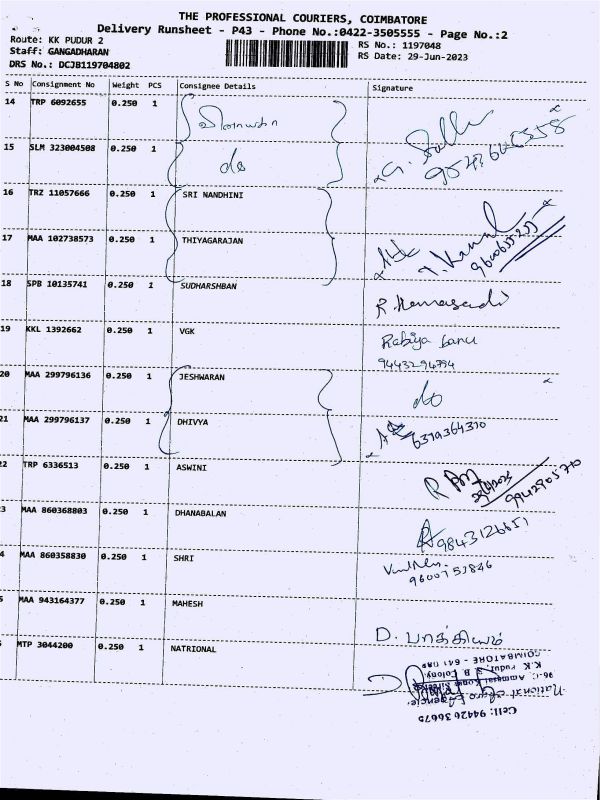 THE PROFESSIONAL COURIERS, COIMBATORE
Delivery Runsheet - P43 - Phone No.:0422-3505555 - Page No.:2
Route: KK PUDUR 2
RS No.: 1197048
Staff: GANGADHARAN
RS Date: 29-Jun-2023
DRS No.: DCJB119704802
S No Consignment No Weight PCS Consignee Details Signature
14 TRP 6092655 0.250 1
15 SLM 323004508 0.250 1 do
16 TRZ 11057666 0.250 1 SRI NANDHINI
17 MAA 102738573 0.250 1 THIYAGARAJAN
18 SPB 10135741 0.250 1 SUDHARSHBAN
19 KKL 1392662 0.250 1 VGK Rabiya banu
9443294794
20 MAA 299796136 0.250 1 JESHWARAN do
21 MAA 299796137 0.250 1 DHIVYA 6379364310
22 TRP 6336513 0.250 1 ASWINI 9942905770
3 MAA 860368803 0.250 1 DHANABALAN 9843126651
4 MAA 860358830 0.250 1 SHRI
9600753846
5 MAA 943164377 0.250 1 MAHESH D. பாக்கியம்
MTP 3044200 0.250 1 NATRIONAL
Cell: 94426 36675
K. K. Pudur,
COIMBATORE - 641 038